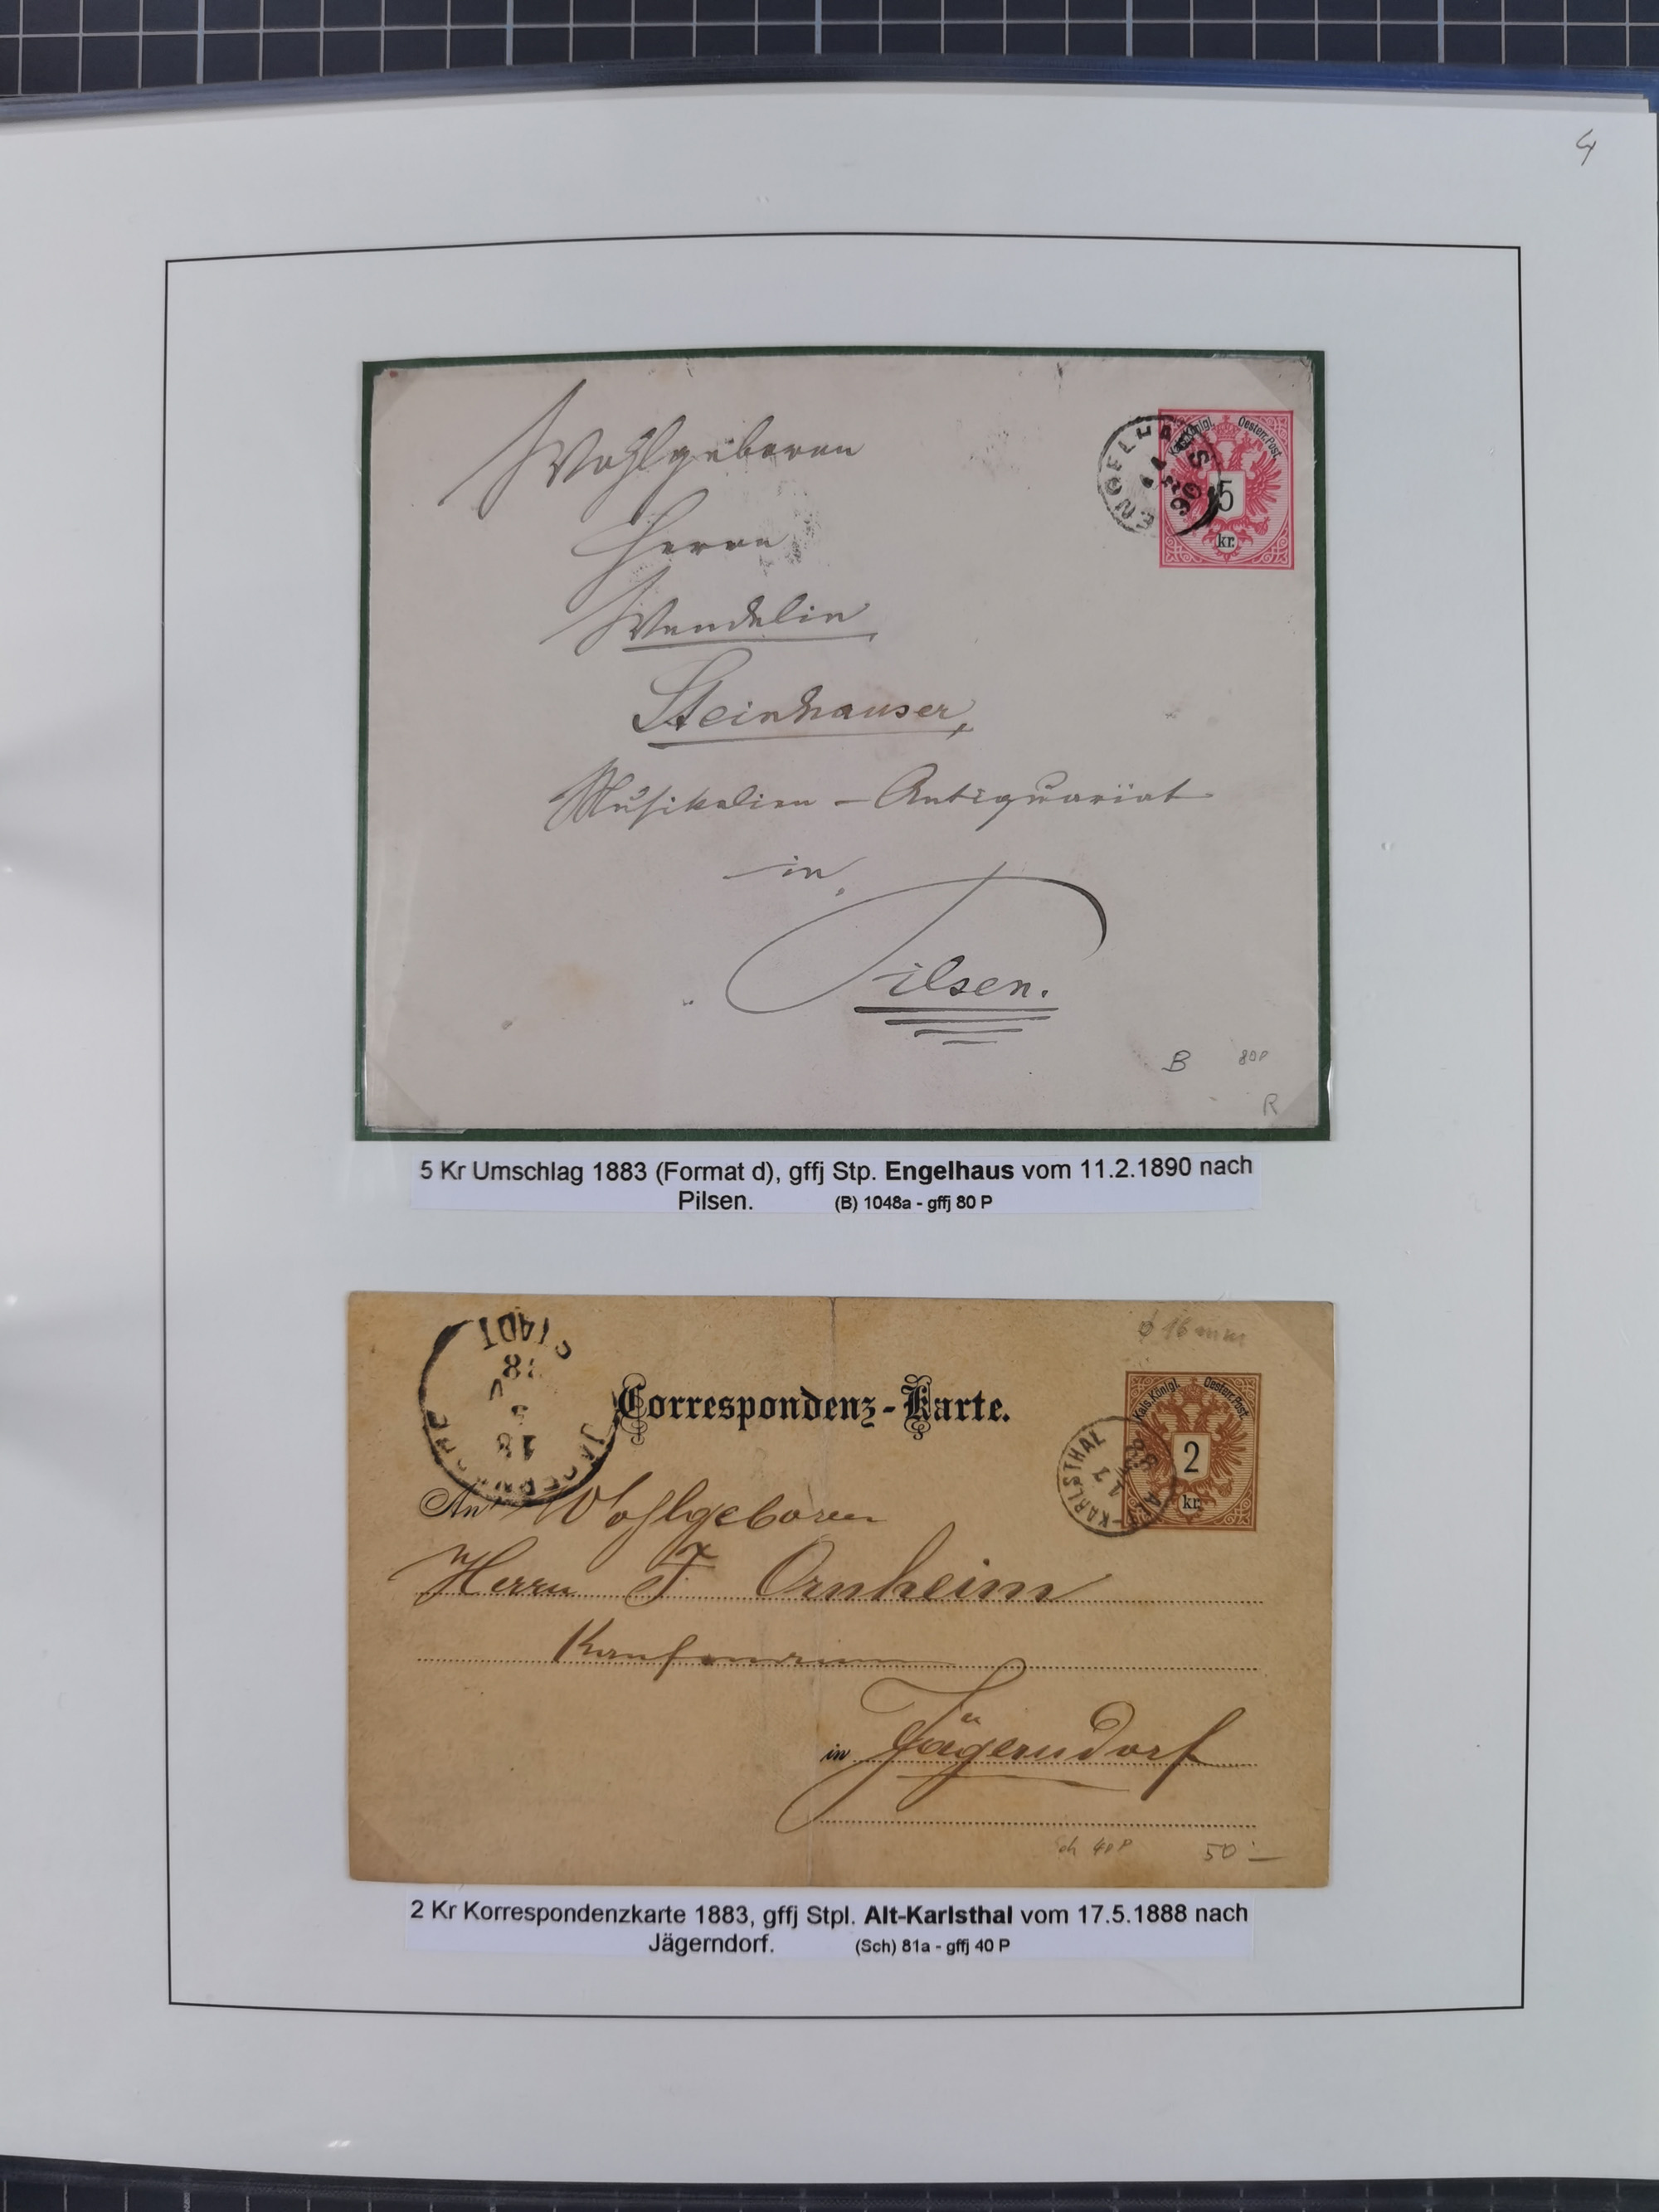 4
Wohlgeboren
Herrn
Wendelin
Steinhauser,
Musikalien - Antiquariat
in
Pilsen.
ENGELHA
90
Kais. Königl. Oesterr. Post.
5
kr.
B 80P
R
5 Kr Umschlag 1883 (Format d), gffj Stp. Engelhaus vom 11.2.1890 nach
Pilsen. (B) 1048a - gffj 80 P
ø 16 mm
STADT
88
5
18
Correspondenz-Karte.
Kais. Königl. Oesterr. Post.
2
kr.
ALT-KARLSTHAL
17
88
An Wohlgeboren
Herrn F Ornheim
Kaufmann
in Jägerndorf
Sch 40P 50.-
2 Kr Korrespondenzkarte 1883, gffj Stpl. Alt-Karlsthal vom 17.5.1888 nach
Jägerndorf. (Sch) 81a - gffj 40 P